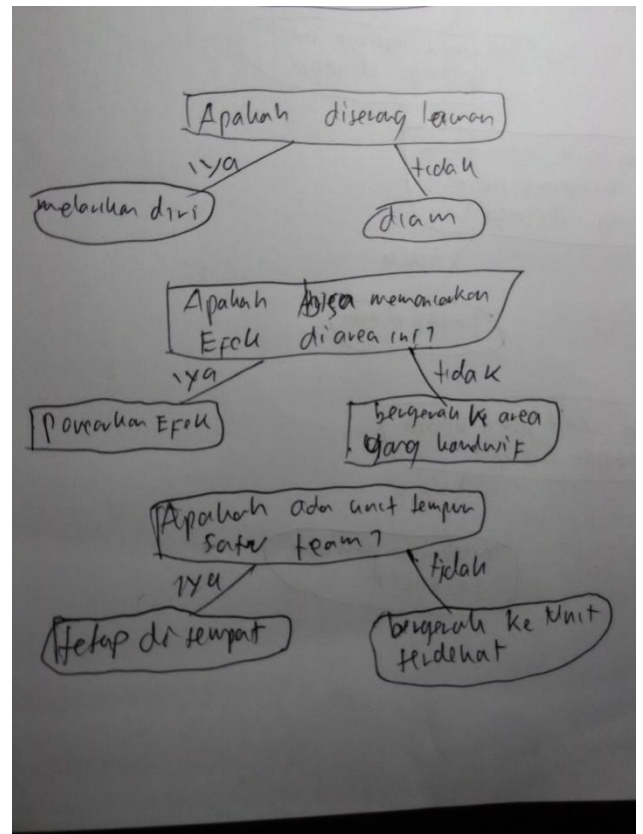 Apakah diserang lawan
iya
tidak
melarikan diri
diam
Apakah bisa memancarkan
Efek di area ini?
iya
tidak
pancarkan Efek
bergerak ke area
yang kondusif
Apakah ada unit tempur
satu team?
iya
tidak
tetap di tempat
bergerak ke Unit
terdekat